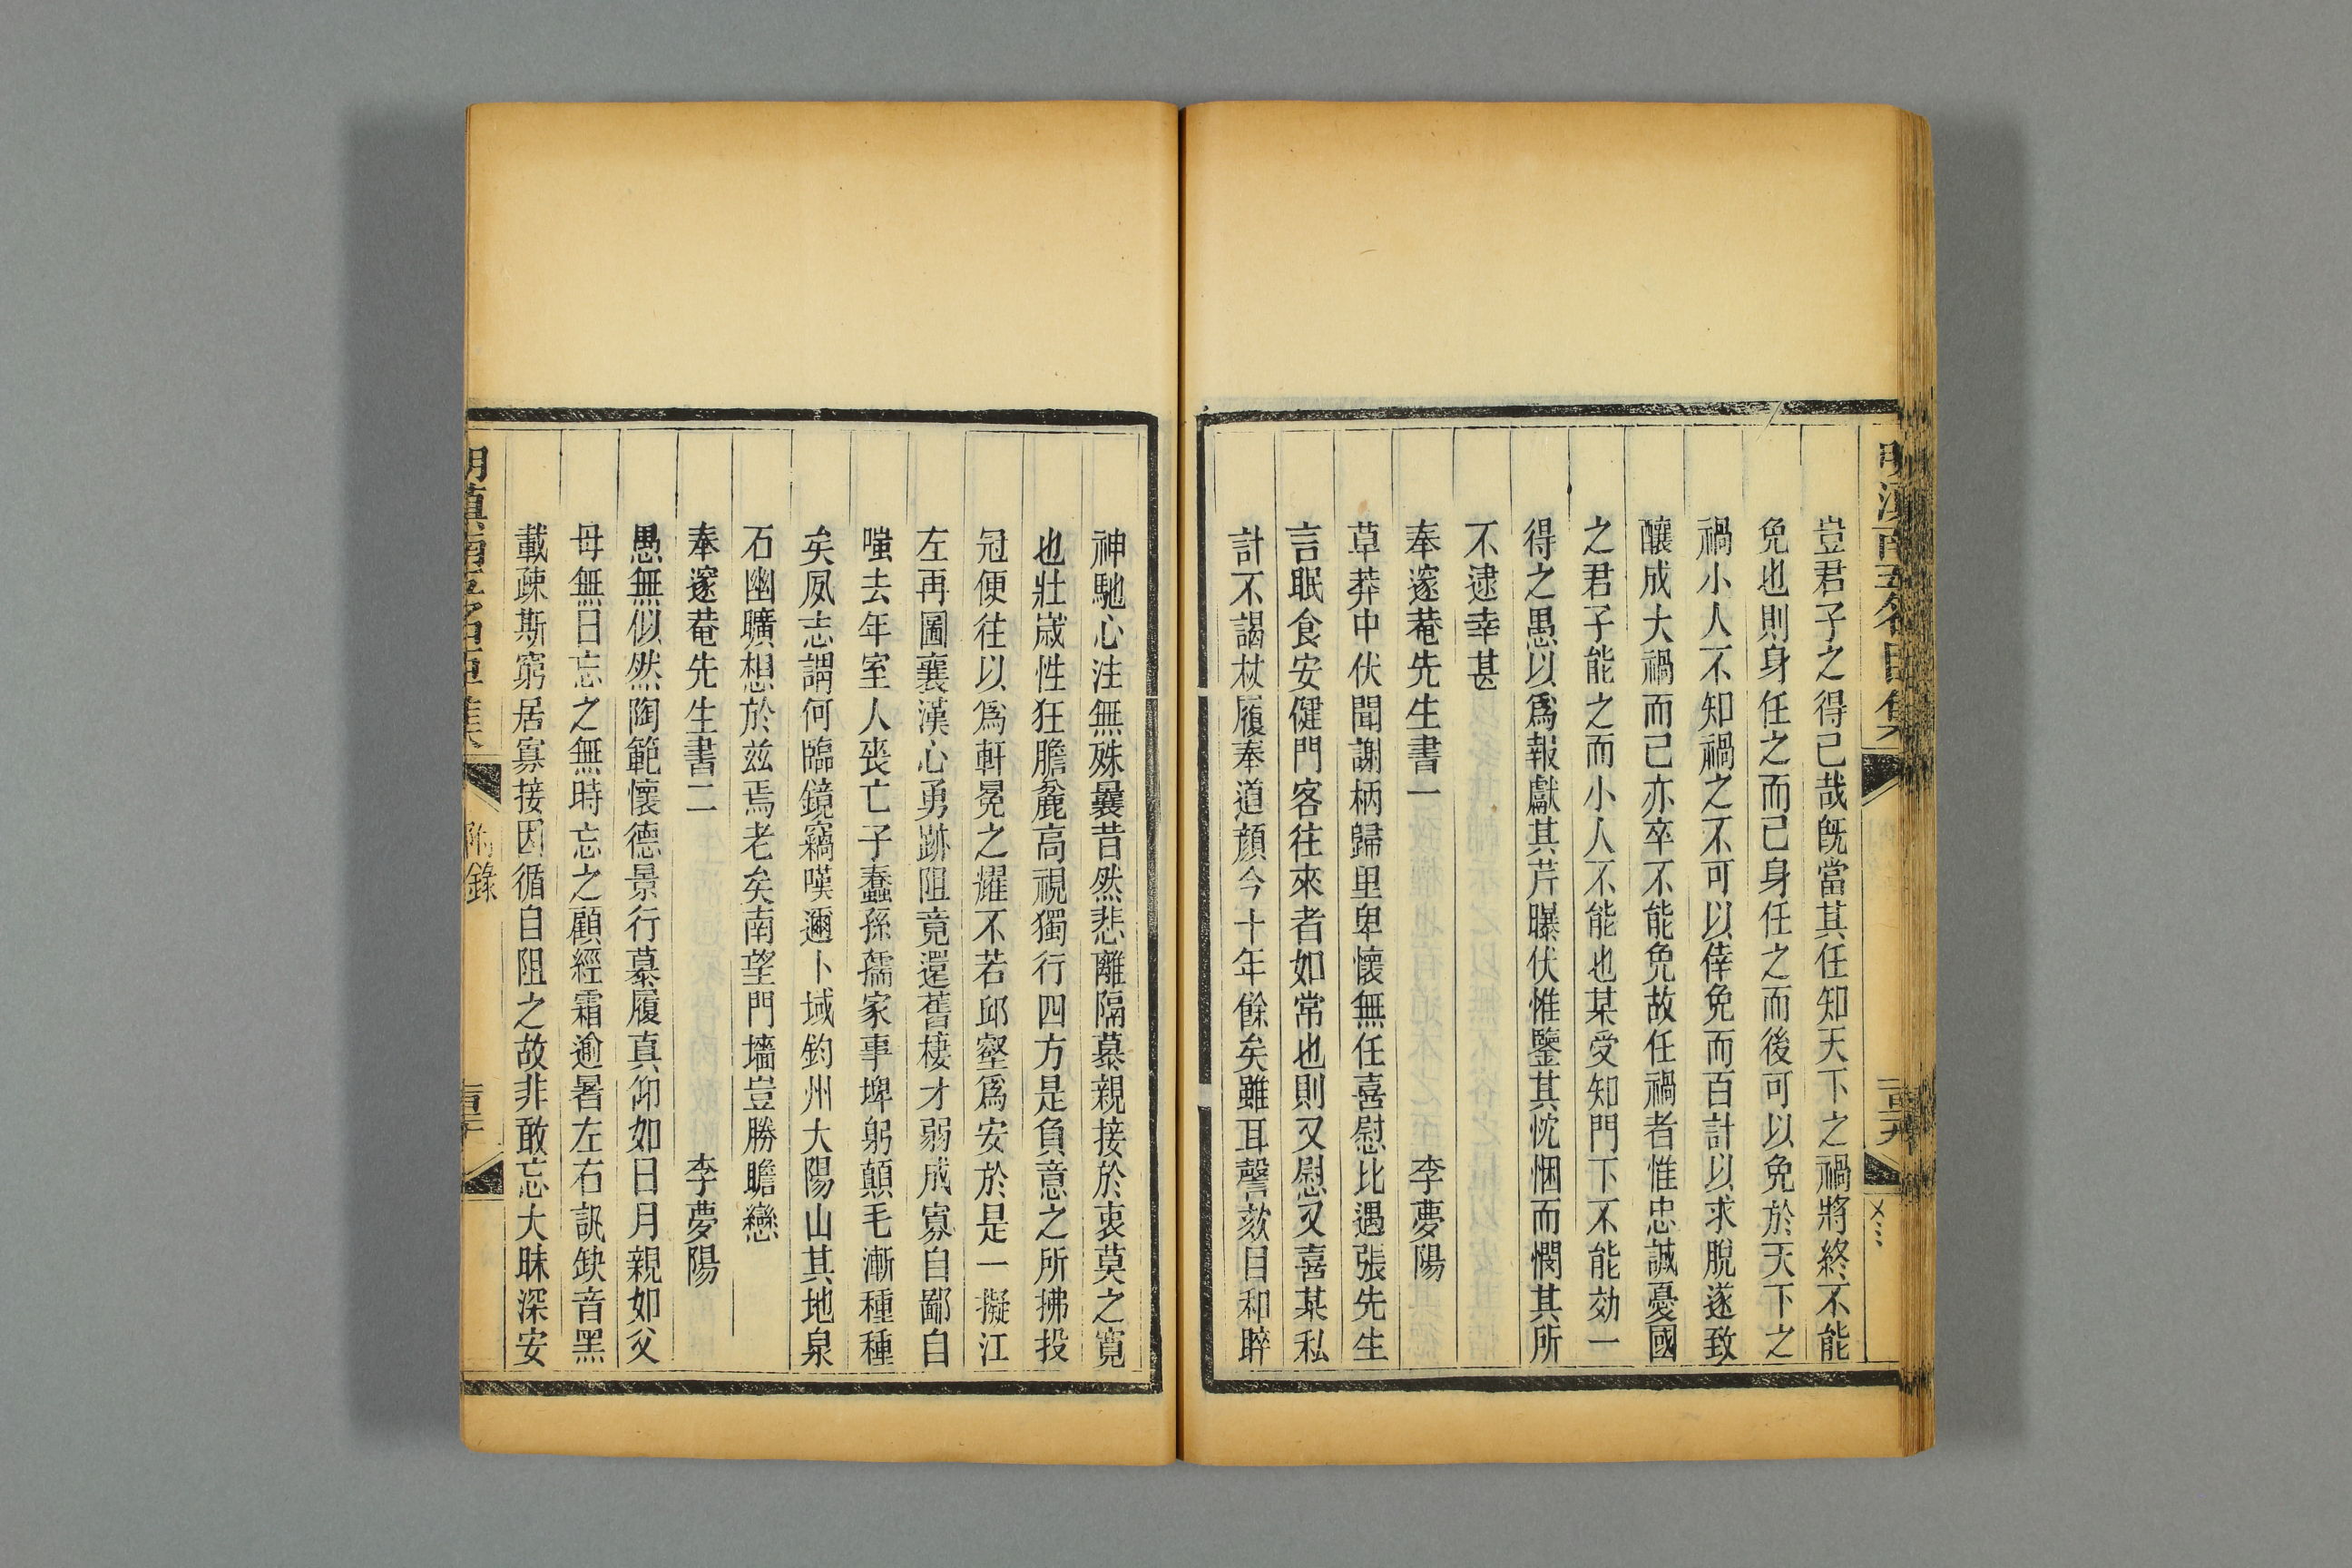 豈君子之得已哉旣當其任知天下之禍將終不能
免也則身任之而已身任之而後可以免於天下之
禍小人不知禍之不可以倖免而百計以求脫遂致
釀成大禍而已亦卒不能免故任禍者惟忠誠憂國
之君子能之而小人不能也某受知門下不能効一
得之愚以爲報獻其芹曝伏惟鑒其忱悃而憫其所
不逮幸甚
奉邃菴先生書一 李夢陽
草莽中伏聞謝柄歸里卑懷無任喜慰比遇張先生
言眠食安健門客往來者如常也則又慰又喜某私
計不謁杖履奉道顔今十年餘矣雖耳謦欬目和睟
神馳心注無殊曩昔然悲離隔慕親接於衷莫之寬
也壯歲性狂膽麄高視獨行四方是負意之所拂投
冠便往以爲軒冕之燿不若邱壑爲安於是一擬江
左再圖襄漢心勇跡阻竟還舊棲才弱成寡自鄙自
嗤去年室人丧亡子蠢孫孺家事埤躬顛毛漸種種
矣夙志謂何臨鏡竊嘆邇卜域鈞州大陽山其地泉
石幽曠想於兹焉老矣南望門墻豈勝瞻戀
奉邃菴先生書二 李夢陽
愚無似然陶範懷德景行慕履真仰如日月親如父
母無日忘之無時忘之顧經霜逾暑左右訊缺音黑
載疎斯窮居寡接因循自阻之故非敢忘大昧深安
附錄